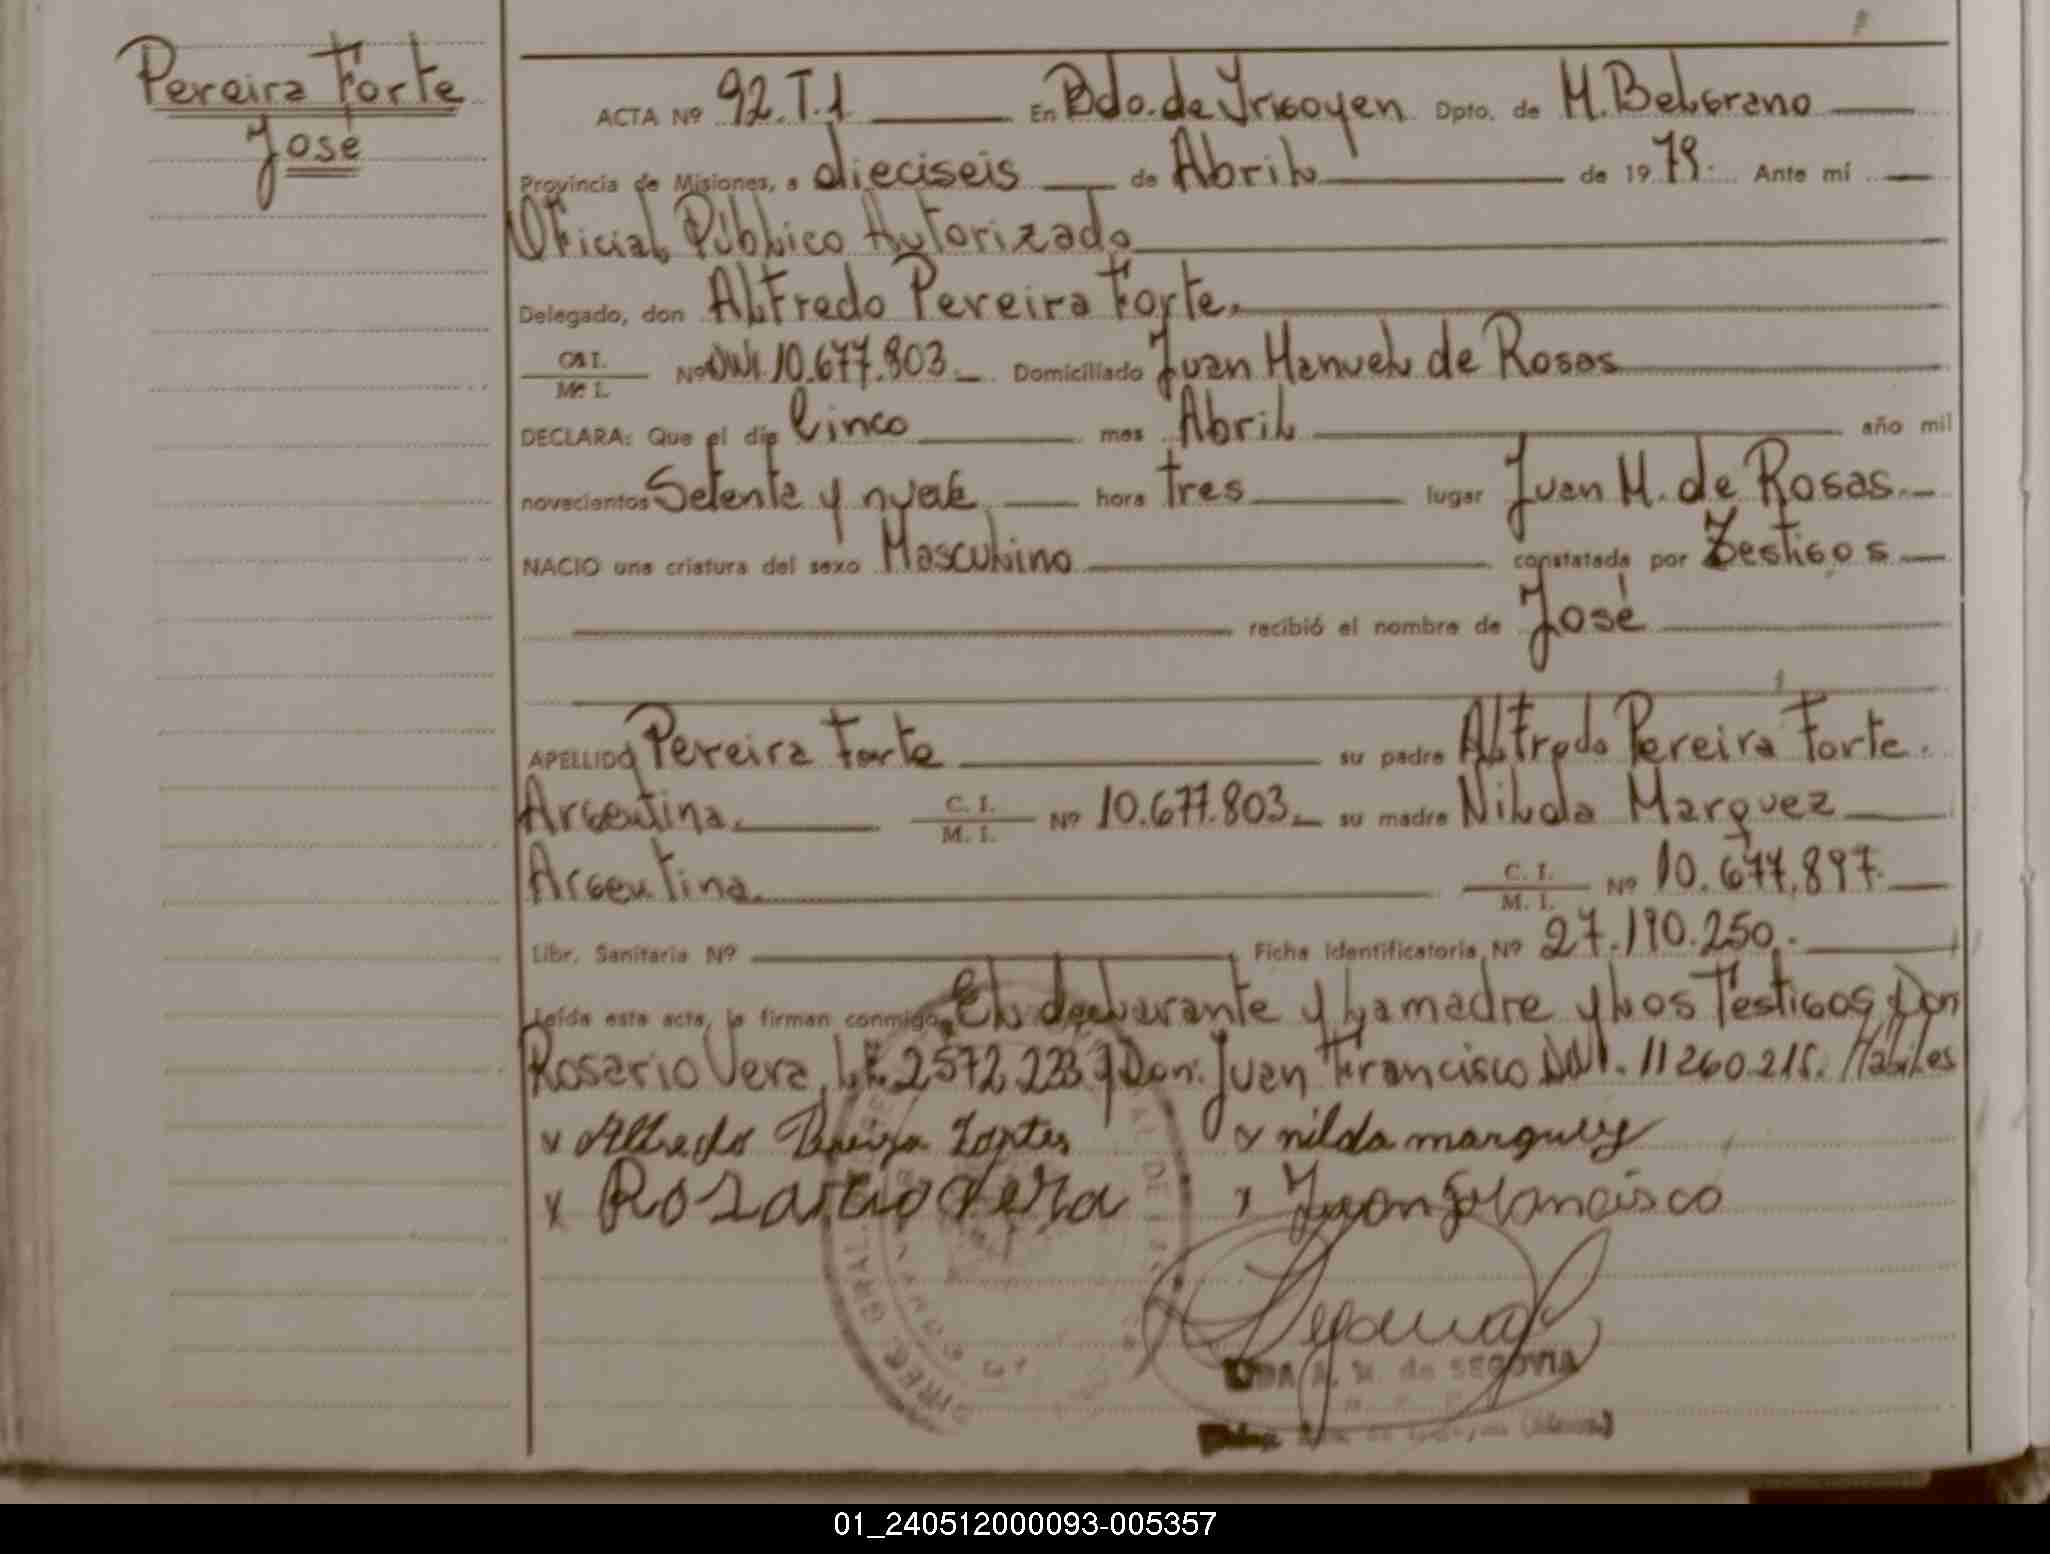 Pereira Forte
José
ACTA Nº 92.T.1 En Bdo. de Yrigoyen Dpto. de M. Belgrano
Provincia de Misiones, a dieciseis de Abril de 1979. Ante mí
Oficial Público Autorizado
Delegado, don Alfredo Pereira Forte.
C. I.
M. I.
Nº DNI. 10.677.803. Domiciliado Juan Manuel de Rosas
DECLARA: Que el día Cinco mes Abril año mil
novecientos Setenta y nueve hora tres lugar Juan M. de Rosas.
NACIO una criatura del sexo Masculino constatada por Testigos
recibió el nombre de José
APELLIDO Pereira Forte su padre Alfredo Pereira Forte.
Argentina. C. I. / M. I. Nº 10.677.803. su madre Nilda Marquez
Argentina. C. I. / M. I. Nº 10.677.897.
Libr. Sanitaria Nº Ficha Identificatoria Nº 27.190.250.
Leída esta acta, la firman conmigo, El declarante y la madre y los Testigos Don
Rosario Vera, L.E. 2572233 y Don: Juan Francisco DNI. 11260215. Hábiles
x Alfredo Pereira Fortes x nilda marquez
x Rosario Vera x Juan Francisco
A. M. de SEGOVIA
01_240512000093-005357